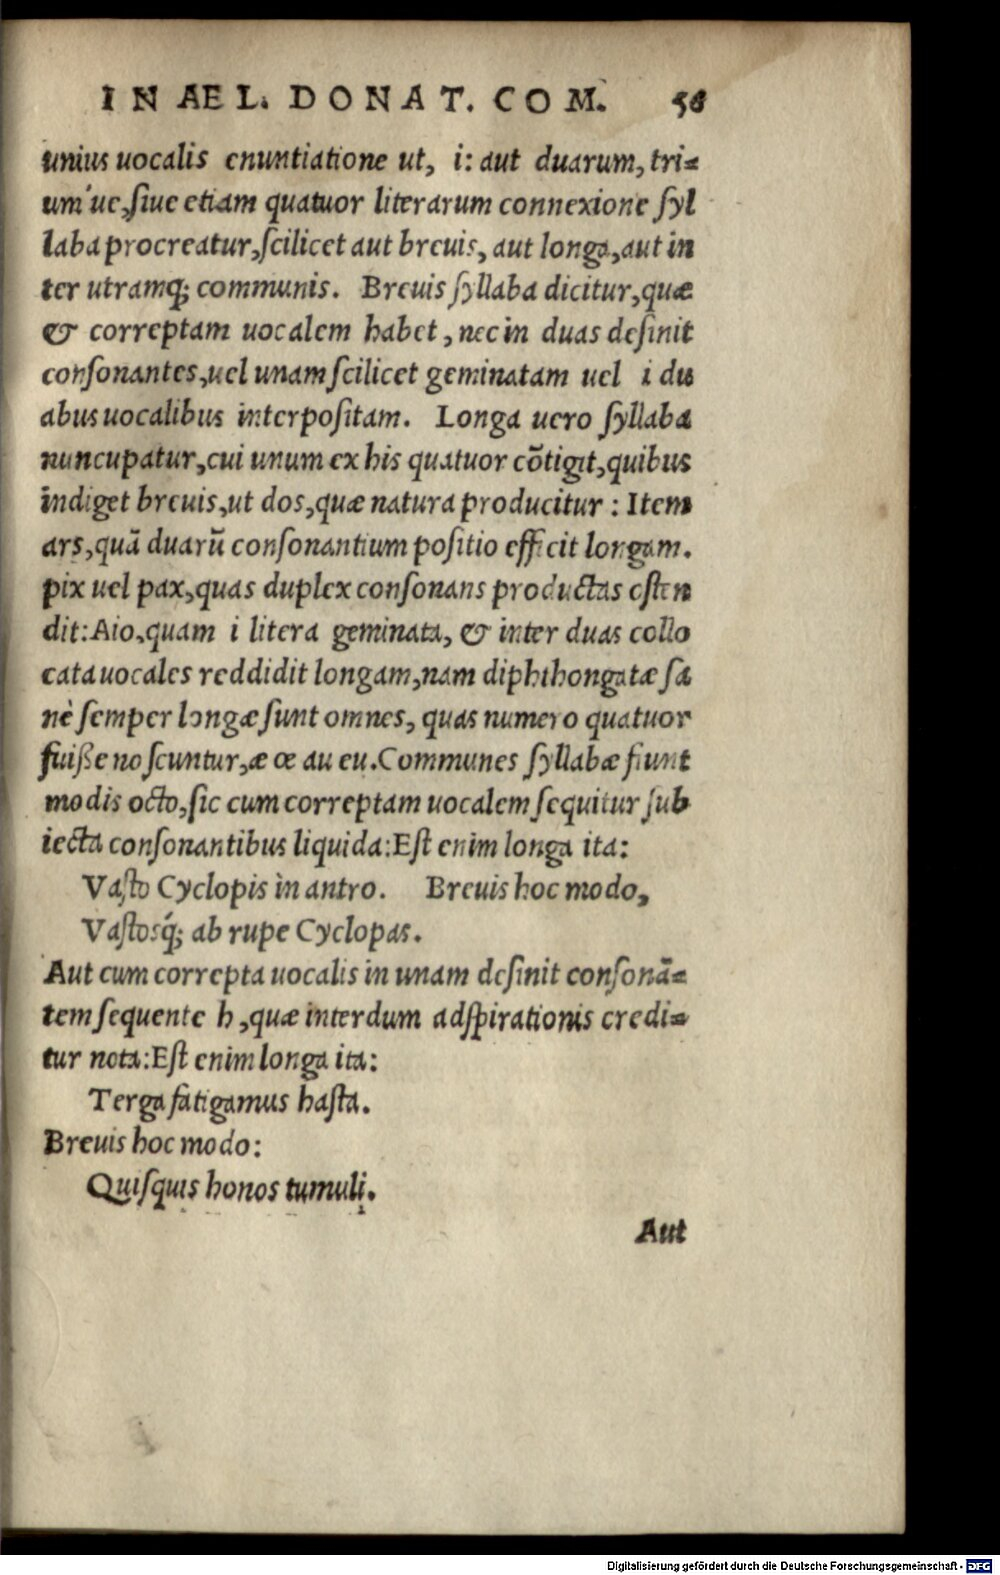 IN AEL. DONAT. COM. 56
unius uocalis enuntiatione ut, i: aut duarum, tri⸗
um´ue,ſiue etiam quatuor literarum connexione ſyl
laba procreatur,ſcilicet aut breuis, aut longa,aut in
ter utramq; communis. Breuis ſyllaba dicitur,quæ
& correptam uocalem habet, nec in duas deſinit
conſonantes,uel unam ſcilicet geminatam uel i du
abus uocalibus interpoſitam. Longa uero ſyllaba
nuncupatur,cui unum ex his quatuor cõtigit,quibus
indiget breuis,ut dos,quæ natura producitur: Item
ars,quã duarũ conſonantium poſitio efficit longam.
pix uel pax,quas duplex conſonans productas oſten
dit:Aio,quam i litera geminata, & inter duas collo
cata uocales reddidit longam,nam diphthongatæ ſa
nè ſemper longæ ſunt omnes, quas numero quatuor
fuiße noſcuntur,æ œ au eu.Communes ſyllabæ fiunt
modis octo,ſic cum correptam uocalem ſequitur ſub
iecta conſonantibus liquida:Eſt enim longa ita:
Vaſto Cyclopis in antro. Breuis hoc modo,
Vaſtosq́; ab rupe Cyclopas.
Aut cum correpta uocalis in unam deſinit conſonã⸗
tem ſequente h,quæ interdum adſpirationis credi⸗
tur nota:Eſt enim longa ita:
Terga fatigamus haſta.
Breuis hoc modo:
Quiſquis honos tumuli.
Aut
Digitalisierung gefördert durch die Deutsche Forschungsgemeinschaft - DFG